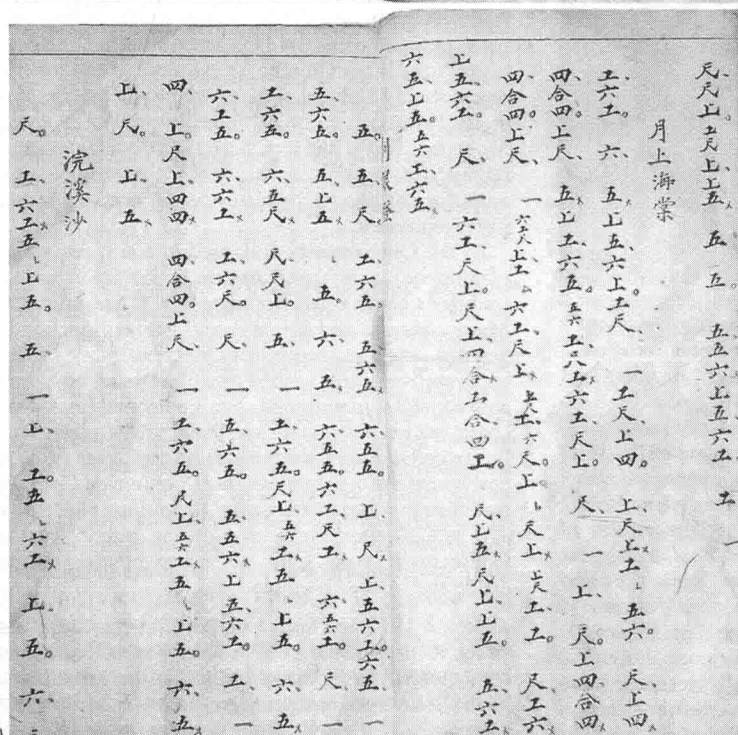 尺尺上工尺上上五 五 五 五五六上五六工 工 一
月上海棠
工六工 六 五上五六上工尺 一工尺上四 上尺上工 五六 尺上四
四合四上尺 五上工六五五六工尺工六工尺上 尺 一 上 尺上四合四
四合四上尺 一六工尺上工 六工尺上 工六尺上 尺上 上尺工工 尺工六
上五六工 尺 一六工尺上尺上四合工合四工 尺上五尺上上五 五六工
六五上五五六工六五
五 五尺 工六五 五六五 六五五 上尺 上五六工六五 一
五六五 五上五 五 六 五 六五五六工尺工 六五六工 尺 一
工六五 六五尺 尺尺上 五 一 工六五尺上五六工五 上五 六五
六工五 六六工 工六尺 尺 一 五六五 五五六上五六工 工 一
四 上尺上四四 四合四上尺 一 工六五 尺上五六工五 上五 六五
上尺 上五
浣溪沙
尺 工六工五上五 五 一上 工五 六工 上五 六